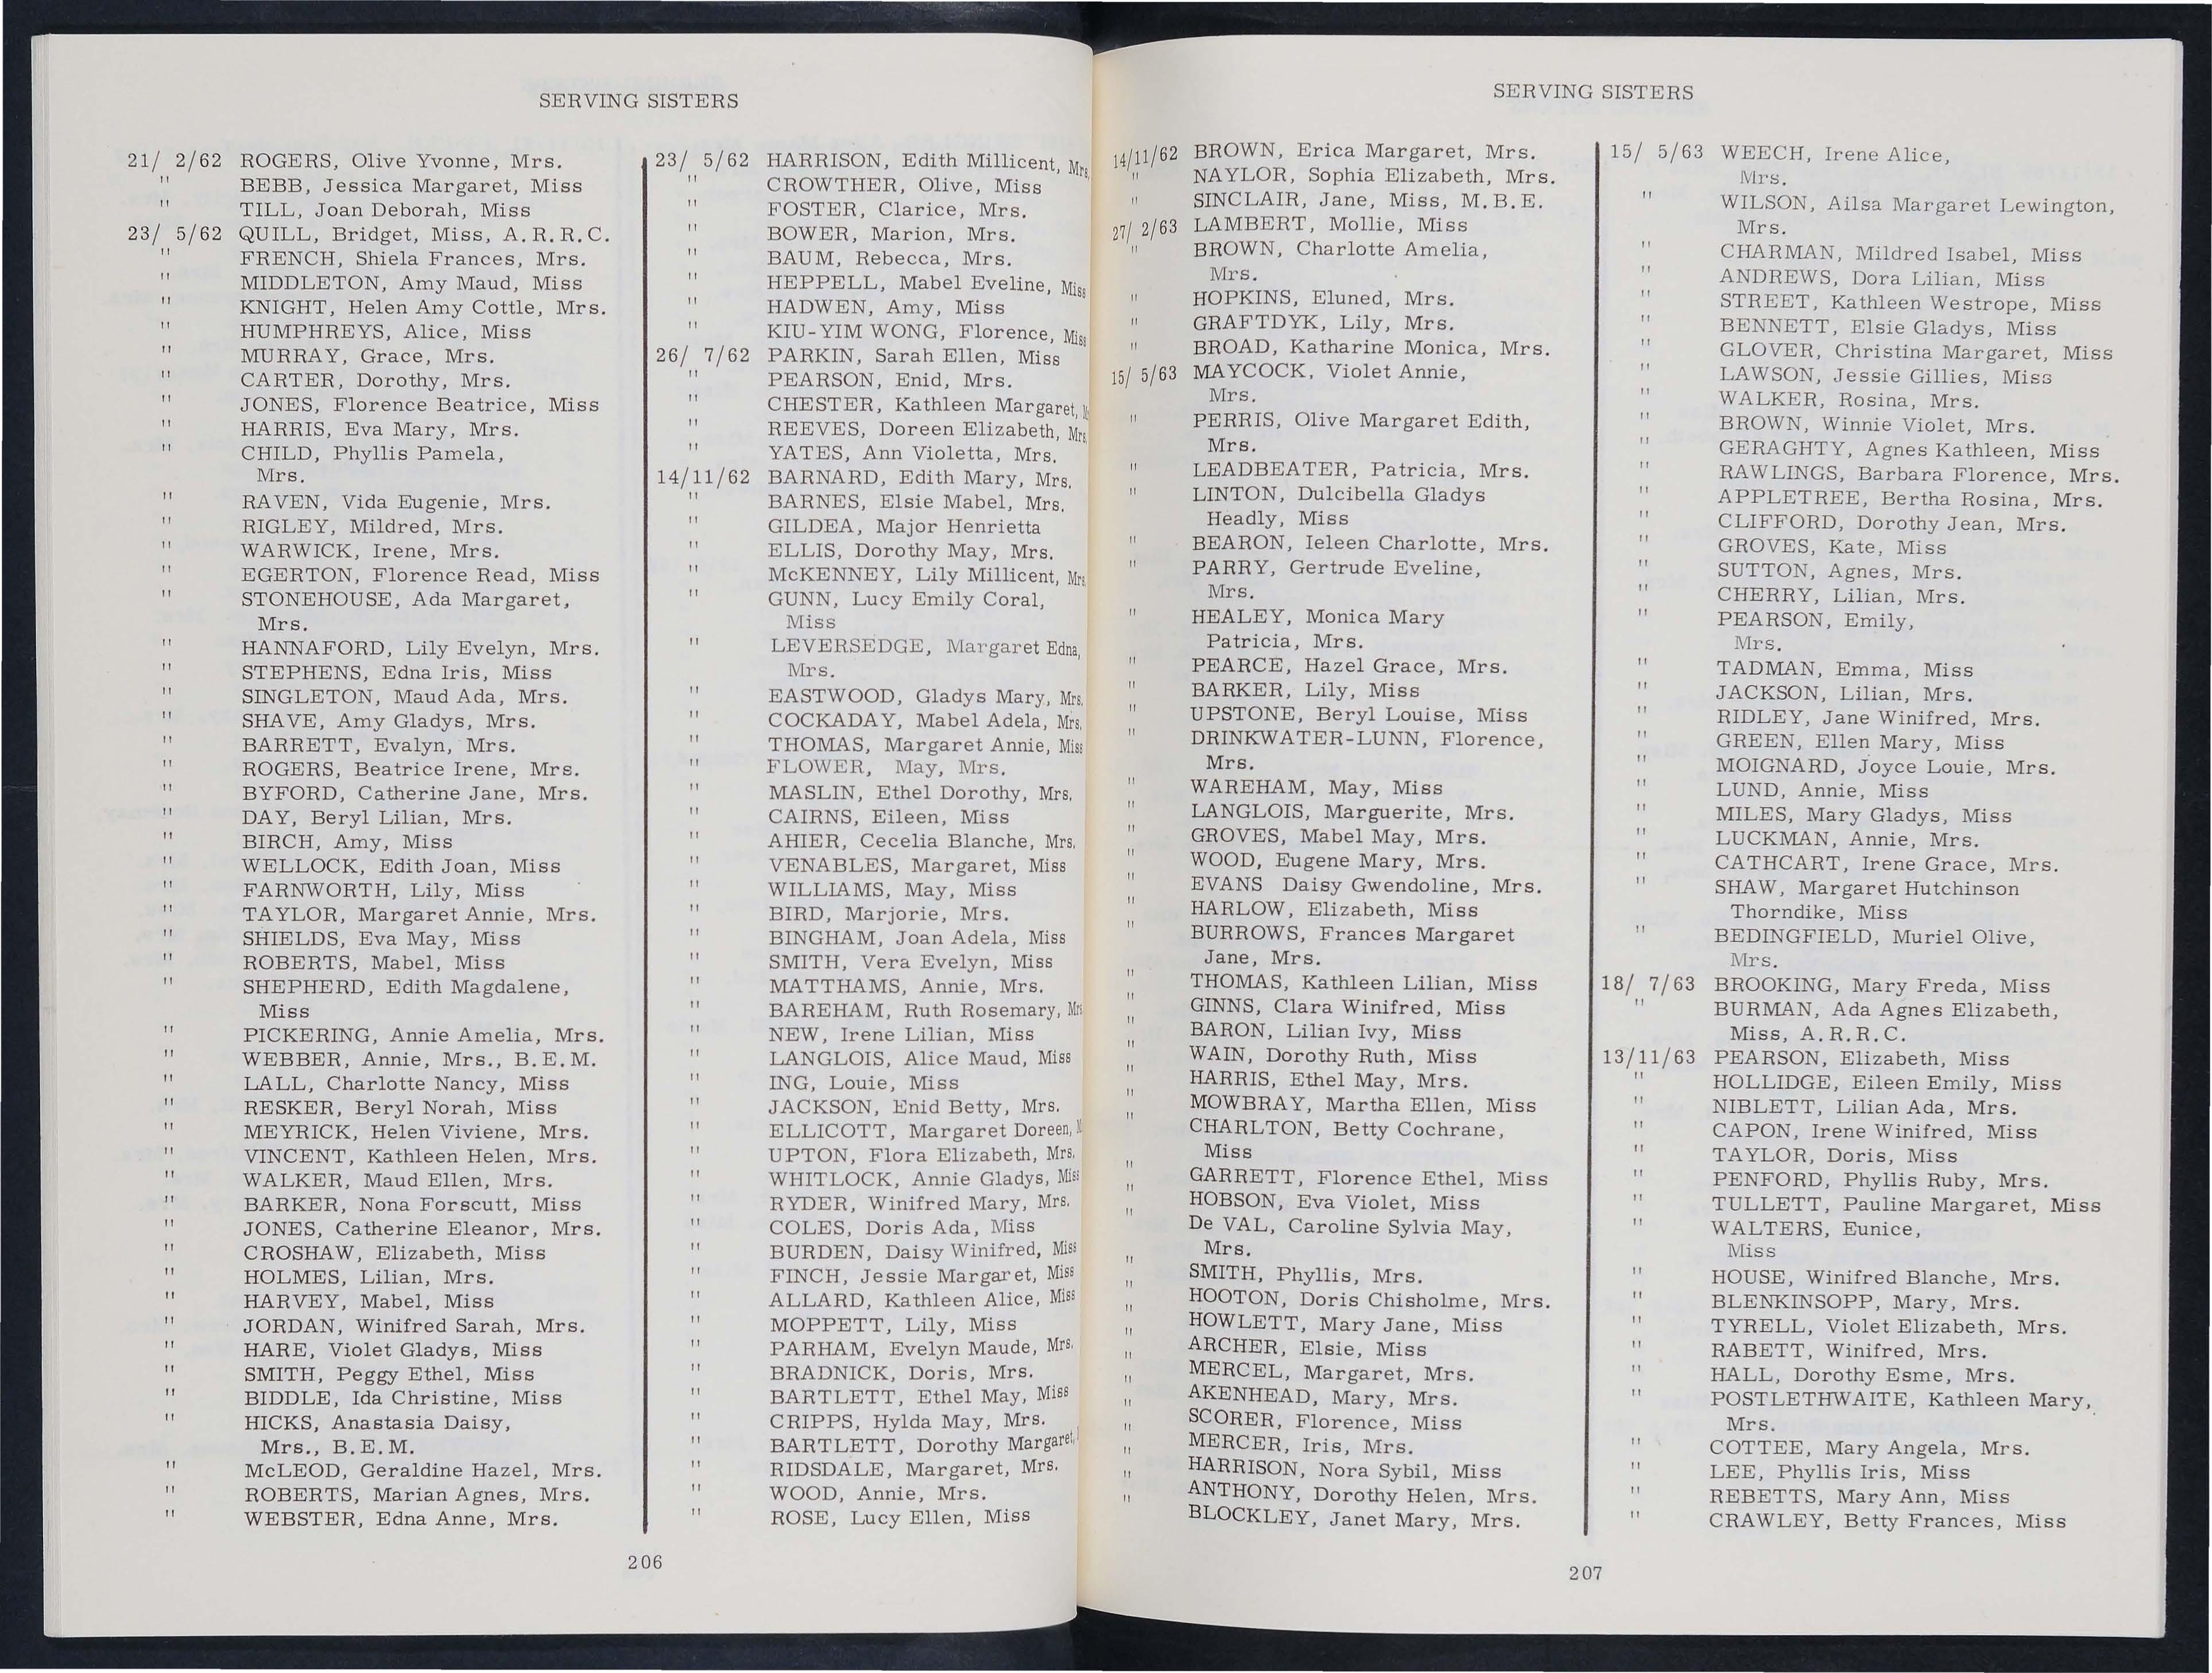 SERVING SISTERS
21/ 2/62 ROGERS, Olive Yvonne, Mrs.
" BEBB, Jessica Margaret, Miss
" TILL, Joan Deborah, Miss
23/ 5/62 QUILL, Bridget, Miss, A.R.R.C.
" FRENCH, Shiela Frances, Mrs.
" MIDDLETON, Amy Maud, Miss
" KNIGHT, Helen Amy Cottle, Mrs.
" HUMPHREYS, Alice, Miss
" MURRAY, Grace, Mrs.
" CARTER, Dorothy, Mrs.
" JONES, Florence Beatrice, Miss
" HARRIS, Eva Mary, Mrs.
" CHILD, Phyllis Pamela,
Mrs.
" RAVEN, Vida Eugenie, Mrs.
" RIGLEY, Mildred, Mrs.
" WARWICK, Irene, Mrs.
" EGERTON, Florence Read, Miss
" STONEHOUSE, Ada Margaret,
Mrs.
" HANNAFORD, Lily Evelyn, Mrs.
" STEPHENS, Edna Iris, Miss
" SINGLETON, Maud Ada, Mrs.
" SHAVE, Amy Gladys, Mrs.
" BARRETT, Evalyn, Mrs.
" ROGERS, Beatrice Irene, Mrs.
" BYFORD, Catherine Jane, Mrs.
" DAY, Beryl Lilian, Mrs.
" BIRCH, Amy, Miss
" WELLOCK, Edith Joan, Miss
" FARNWORTH, Lily, Miss
" TAYLOR, Margaret Annie, Mrs.
" SHIELDS, Eva May, Miss
" ROBERTS, Mabel, Miss
" SHEPHERD, Edith Magdalene,
Miss
" PICKERING, Annie Amelia, Mrs.
" WEBBER, Annie, Mrs., B.E.M.
" LALL, Charlotte Nancy, Miss
" RESKER, Beryl Norah, Miss
" MEYRICK, Helen Viviene, Mrs.
" VINCENT, Kathleen Helen, Mrs.
" WALKER, Maud Ellen, Mrs.
" BARKER, Nona Forscutt, Miss
" JONES, Catherine Eleanor, Mrs.
" CROSHAW, Elizabeth, Miss
" HOLMES, Lilian, Mrs.
" HARVEY, Mabel, Miss
" JORDAN, Winifred Sarah, Mrs.
" HARE, Violet Gladys, Miss
" SMITH, Peggy Ethel, Miss
" BIDDLE, Ida Christine, Miss
" HICKS, Anastasia Daisy,
Mrs., B.E.M.
" McLEOD, Geraldine Hazel, Mrs.
" ROBERTS, Marian Agnes, Mrs.
" WEBSTER, Edna Anne, Mrs.
23/ 5/62 HARRISON, Edith Millicent, Mrs.
" CROWTHER, Olive, Miss
" FOSTER, Clarice, Mrs.
" BOWER, Marion, Mrs.
" BAUM, Rebecca, Mrs.
" HEPPELL, Mabel Eveline, Miss
" HADWEN, Amy, Miss
" KIU-YIM WONG, Florence, Miss
26/ 7/62 PARKIN, Sarah Ellen, Miss
" PEARSON, Enid, Mrs.
" CHESTER, Kathleen Margaret,
" REEVES, Doreen Elizabeth, Mrs.
" YATES, Ann Violetta, Mrs.
14/11/62 BARNARD, Edith Mary, Mrs.
" BARNES, Elsie Mabel, Mrs.
" GILDEA, Major Henrietta
" ELLIS, Dorothy May, Mrs.
" McKENNEY, Lily Millicent, Mrs.
" GUNN, Lucy Emily Coral,
Miss
" LEVERSEDGE, Margaret Edna,
Mrs.
" EASTWOOD, Gladys Mary, Mrs.
" COCKADAY, Mabel Adela, Mrs.
" THOMAS, Margaret Annie, Miss
" FLOWER, May, Mrs.
" MASLIN, Ethel Dorothy, Mrs.
" CAIRNS, Eileen, Miss
" AHIER, Cecelia Blanche, Mrs.
" VENABLES, Margaret, Miss
" WILLIAMS, May, Miss
" BIRD, Marjorie, Mrs.
" BINGHAM, Joan Adela, Miss
" SMITH, Vera Evelyn, Miss
" MATTHAMS, Annie, Mrs.
" BAREHAM, Ruth Rosemary, Mrs
" NEW, Irene Lilian, Miss
" LANGLOIS, Alice Maud, Miss
" ING, Louie, Miss
" JACKSON, Enid Betty, Mrs.
" ELLICOTT, Margaret Doreen,
" UPTON, Flora Elizabeth, Mrs.
" WHITLOCK, Annie Gladys, Miss
" RYDER, Winifred Mary, Mrs.
" COLES, Doris Ada, Miss
" BURDEN, Daisy Winifred, Miss
" FINCH, Jessie Margaret, Miss
" ALLARD, Kathleen Alice, Miss
" MOPPETT, Lily, Miss
" PARHAM, Evelyn Maude, Mrs.
" BRADNICK, Doris, Mrs.
" BARTLETT, Ethel May, Miss
" CRIPPS, Hylda May, Mrs.
" BARTLETT, Dorothy Margaret,
" RIDSDALE, Margaret, Mrs.
" WOOD, Annie, Mrs.
" ROSE, Lucy Ellen, Miss
206
SERVING SISTERS
14/11/62 BROWN, Erica Margaret, Mrs.
" NAYLOR, Sophia Elizabeth, Mrs.
" SINCLAIR, Jane, Miss, M.B.E.
27/ 2/63 LAMBERT, Mollie, Miss
" BROWN, Charlotte Amelia,
Mrs.
" HOPKINS, Eluned, Mrs.
" GRAFTDYK, Lily, Mrs.
" BROAD, Katharine Monica, Mrs.
15/ 5/63 MAYCOCK, Violet Annie,
Mrs.
" PERRIS, Olive Margaret Edith,
Mrs.
" LEADBEATER, Patricia, Mrs.
" LINTON, Dulcibella Gladys
Headly, Miss
" BEARON, Ieleen Charlotte, Mrs.
" PARRY, Gertrude Eveline,
Mrs.
" HEALEY, Monica Mary
Patricia, Mrs.
" PEARCE, Hazel Grace, Mrs.
" BARKER, Lily, Miss
" UPSTONE, Beryl Louise, Miss
" DRINKWATER-LUNN, Florence,
Mrs.
" WAREHAM, May, Miss
" LANGLOIS, Marguerite, Mrs.
" GROVES, Mabel May, Mrs.
" WOOD, Eugene Mary, Mrs.
" EVANS Daisy Gwendoline, Mrs.
" HARLOW, Elizabeth, Miss
" BURROWS, Frances Margaret
Jane, Mrs.
" THOMAS, Kathleen Lilian, Miss
" GINNS, Clara Winifred, Miss
" BARON, Lilian Ivy, Miss
" WAIN, Dorothy Ruth, Miss
" HARRIS, Ethel May, Mrs.
" MOWBRAY, Martha Ellen, Miss
" CHARLTON, Betty Cochrane,
Miss
" GARRETT, Florence Ethel, Miss
" HOBSON, Eva Violet, Miss
" De VAL, Caroline Sylvia May,
Mrs.
" SMITH, Phyllis, Mrs.
" HOOTON, Doris Chisholme, Mrs.
" HOWLETT, Mary Jane, Miss
" ARCHER, Elsie, Miss
" MERCEL, Margaret, Mrs.
" AKENHEAD, Mary, Mrs.
" SCORER, Florence, Miss
" MERCER, Iris, Mrs.
" HARRISON, Nora Sybil, Miss
" ANTHONY, Dorothy Helen, Mrs.
" BLOCKLEY, Janet Mary, Mrs.
15/ 5/63 WEECH, Irene Alice,
Mrs.
" WILSON, Ailsa Margaret Lewington,
Mrs.
" CHARMAN, Mildred Isabel, Miss
" ANDREWS, Dora Lilian, Miss
" STREET, Kathleen Westrope, Miss
" BENNETT, Elsie Gladys, Miss
" GLOVER, Christina Margaret, Miss
" LAWSON, Jessie Gillies, Miss
" WALKER, Rosina, Mrs.
" BROWN, Winnie Violet, Mrs.
" GERAGHTY, Agnes Kathleen, Miss
" RAWLINGS, Barbara Florence, Mrs.
" APPLETREE, Bertha Rosina, Mrs.
" CLIFFORD, Dorothy Jean, Mrs.
" GROVES, Kate, Miss
" SUTTON, Agnes, Mrs.
" CHERRY, Lilian, Mrs.
" PEARSON, Emily,
Mrs.
" TADMAN, Emma, Miss
" JACKSON, Lilian, Mrs.
" RIDLEY, Jane Winifred, Mrs.
" GREEN, Ellen Mary, Miss
" MOIGNARD, Joyce Louie, Mrs.
" LUND, Annie, Miss
" MILES, Mary Gladys, Miss
" LUCKMAN, Annie, Mrs.
" CATHCART, Irene Grace, Mrs.
" SHAW, Margaret Hutchinson
Thorndike, Miss
" BEDINGFIELD, Muriel Olive,
Mrs.
18/ 7/63 BROOKING, Mary Freda, Miss
" BURMAN, Ada Agnes Elizabeth,
Miss, A.R.R.C.
13/11/63 PEARSON, Elizabeth, Miss
" HOLLIDGE, Eileen Emily, Miss
" NIBLETT, Lilian Ada, Mrs.
" CAPON, Irene Winifred, Miss
" TAYLOR, Doris, Miss
" PENFORD, Phyllis Ruby, Mrs.
" TULLETT, Pauline Margaret, Miss
" WALTERS, Eunice,
Miss
" HOUSE, Winifred Blanche, Mrs.
" BLENKINSOPP, Mary, Mrs.
" TYRELL, Violet Elizabeth, Mrs.
" RABETT, Winifred, Mrs.
" HALL, Dorothy Esme, Mrs.
" POSTLETHWAITE, Kathleen Mary,
Mrs.
" COTTEE, Mary Angela, Mrs.
" LEE, Phyllis Iris, Miss
" REBETTS, Mary Ann, Miss
" CRAWLEY, Betty Frances, Miss
207